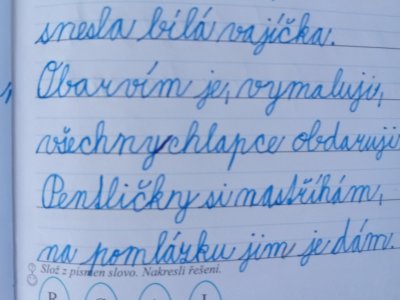 snesla bílá vajíčka.
Obarvím je, vymaluji,
všechny chlapce obdaruji
Pentličky si nastříhám,
na pomlázku jim je dám.
Slož z písmen slovo. Nakresli řešení.